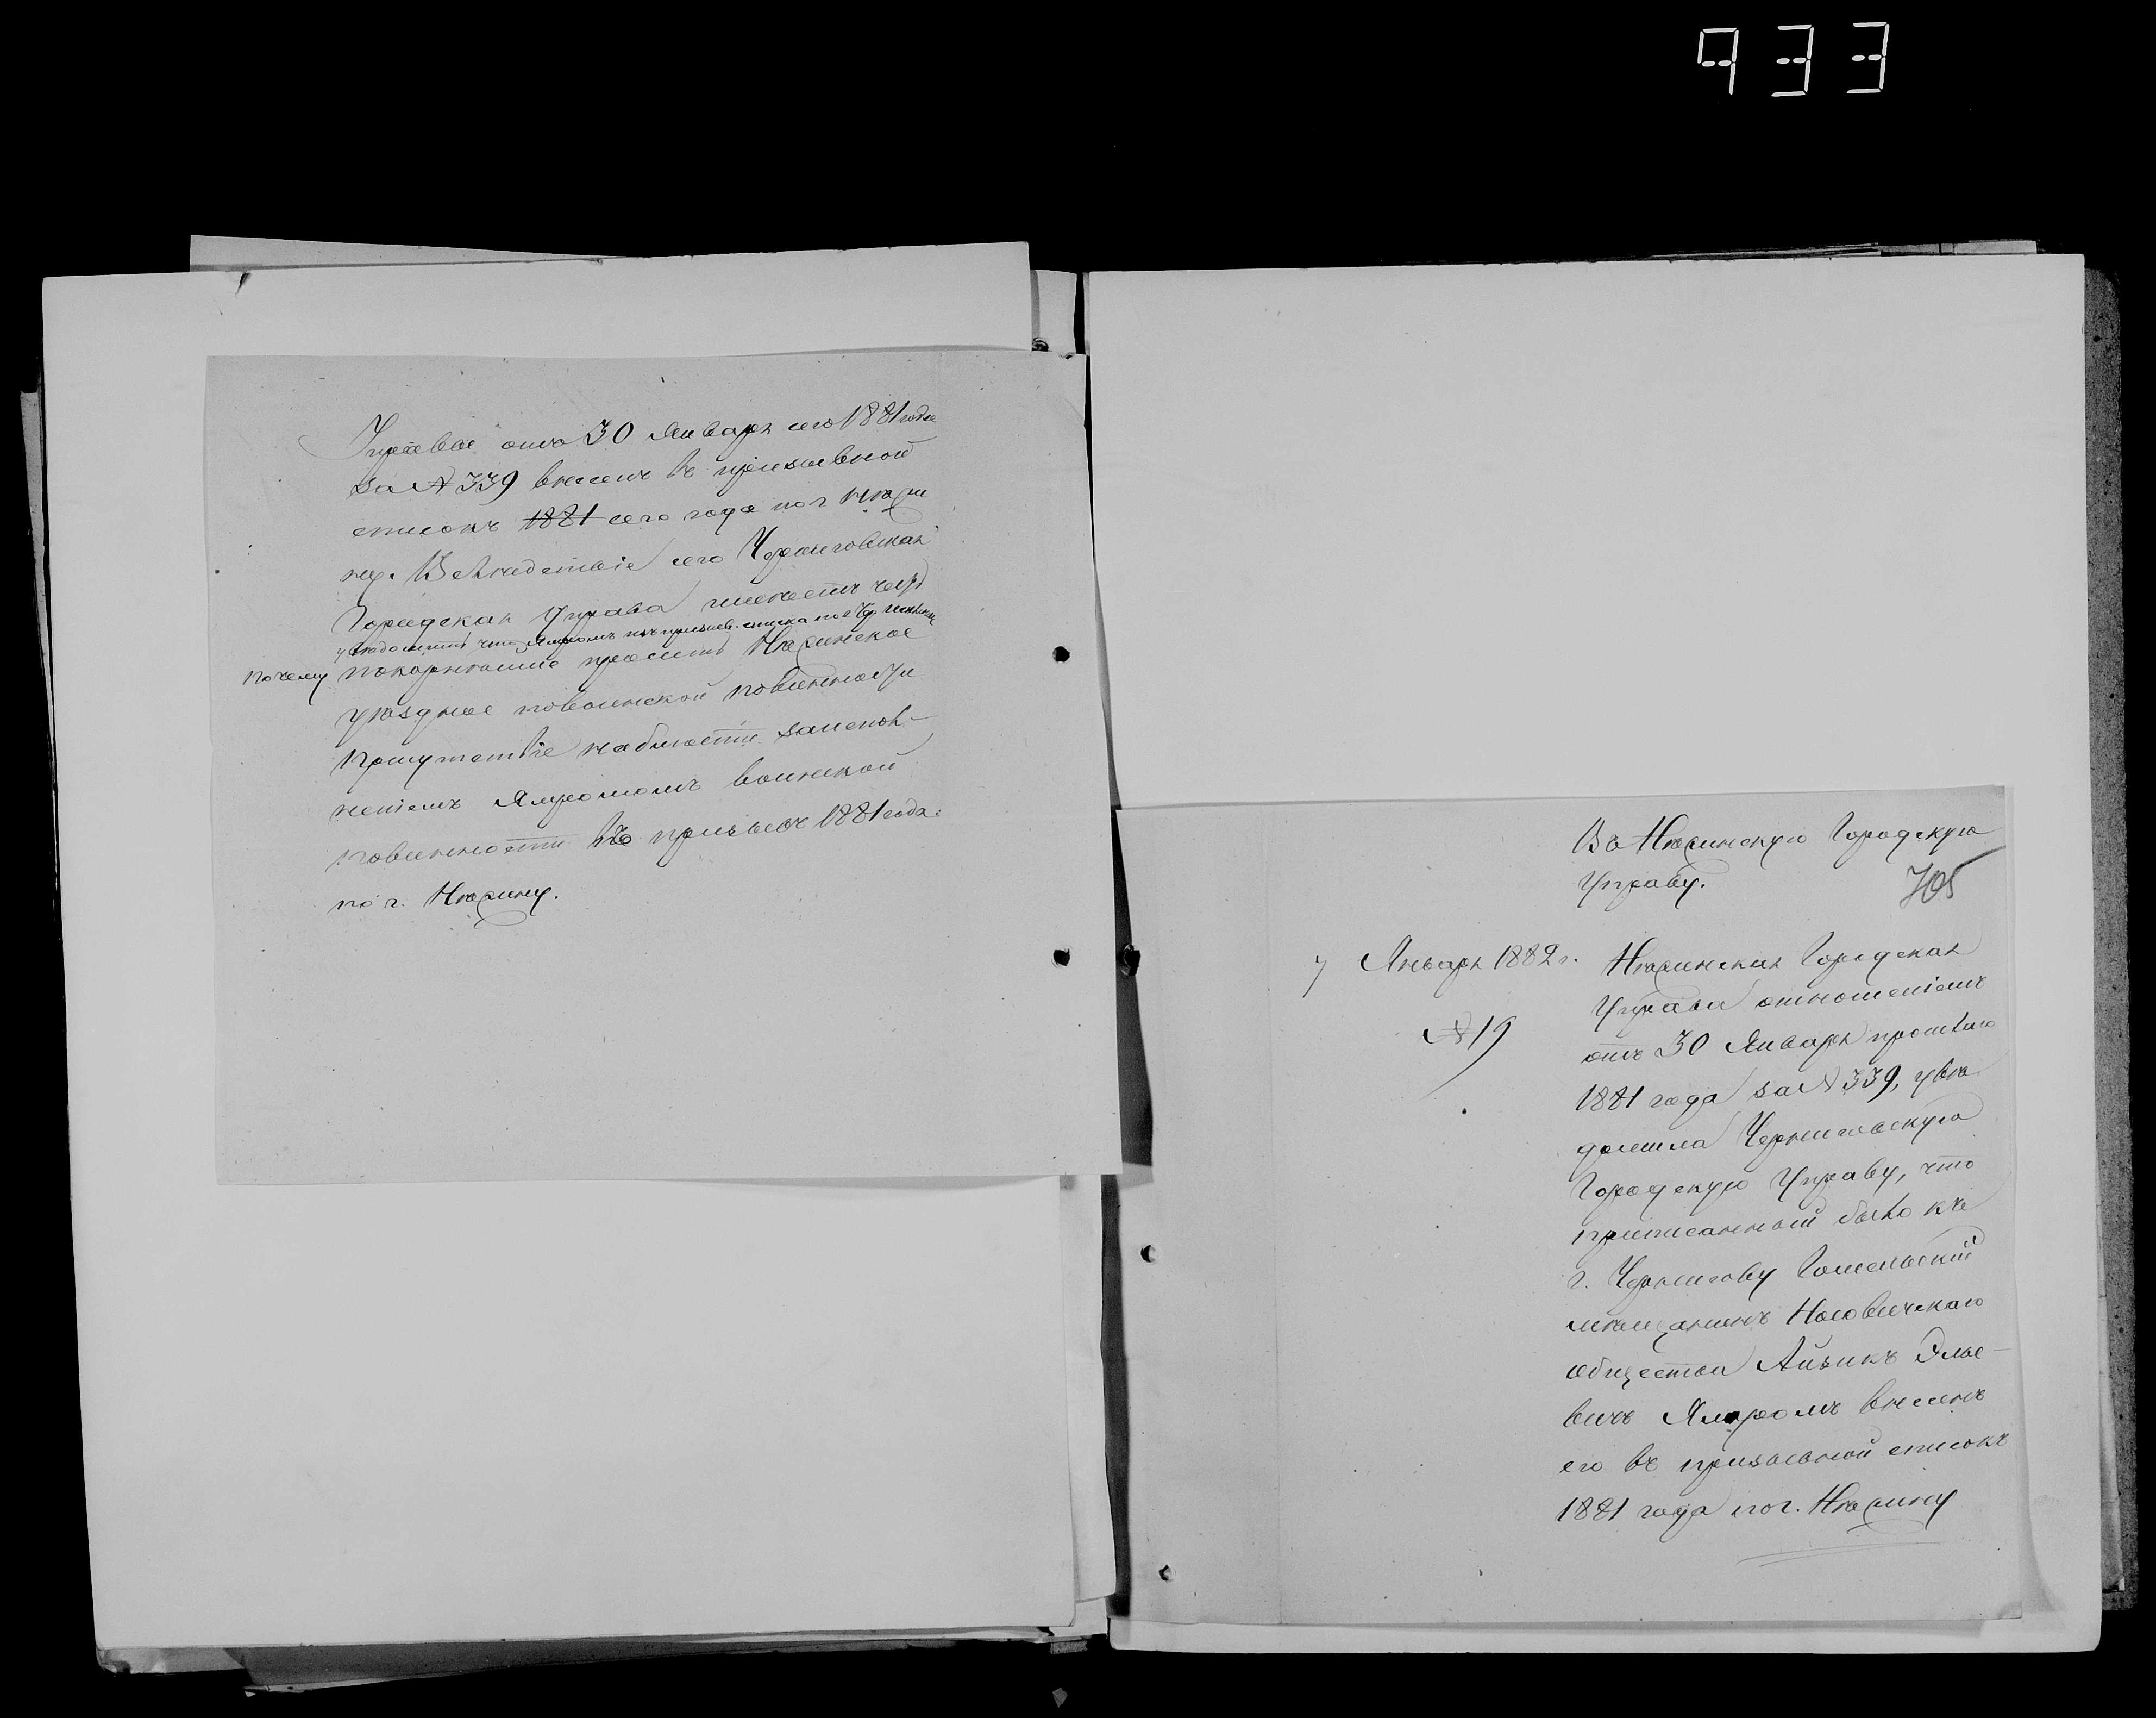 933
Управы отъ 30 Января сего 1881 года
за № 339 внесенъ въ призывной
списокъ 1881 сего года по г. Нѣжи
ну. Вслѣдствіе сего Черниговская
Городская Управа имѣетъ честь
увѣдомить, что Ямромъ изъ призыв. списка по г. Чер
почему покорнѣйше просить Нѣжинское
уѣздное по воинской повинности
присутствіе
неніемъ Ямромомъ воинской
повинности въ призывъ 1881 года
по г. Нѣжину.
Въ Нѣжинскую Городскую
Управу.
705
7 Января 1882 г.
№ 19
Нѣжинская Городская
Управа отношеніемъ
отъ 30 Января прошлаго
1881 года за № 339, увѣ
домила Черниговскую
Городскую Управу, что
приписанный было къ
г. Чернигову Гомельскій
мѣщанинъ Носовичскаго
общества Айзикъ Элье-
вичъ Ямромъ внесенъ
ею въ призывной списокъ
1881 года по г. Нѣжину